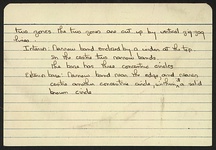 two zones. the two zones are cut up by vertical zig-zag
lines.
Interior: Narrow band enclosed by a under at the top
In the centre two narrow bands
the base has three concentric circles
base: Narrow band near the edge and nearer
centre another concentric circle, within a solid
brown circle